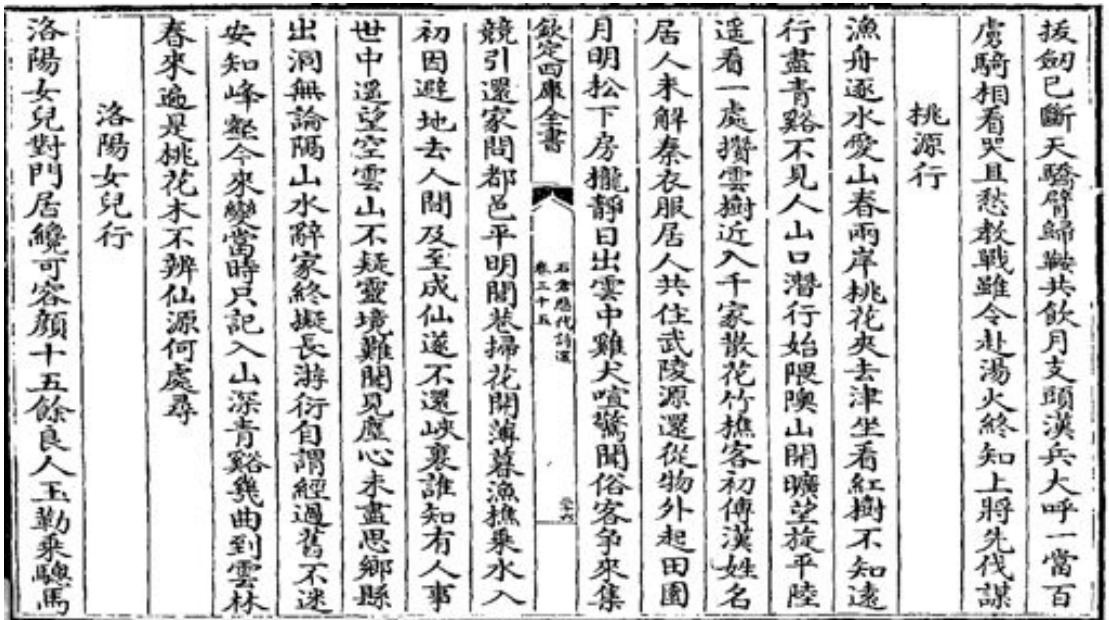 拔劒已斷天驕臂歸鞍共飲月支頭漢兵大呼一當百
虜騎相看哭且愁教戰雖令赴湯火終知上將先伐謀
桃源行
漁舟逐水愛山春兩岸挑花夾去津坐看紅樹不知逺
行盡青谿不見人山口潛行始隈隩山開曠望旋平陸
遥看一處攢雲樹近入千家散花竹樵客初傳漢姓名
居人未解秦衣服居人共住武陵源還從物外起田園
月明松下房攏靜日出雲中雞犬喧驚聞俗客爭來集
欽定四庫全書
石倉歴代詩選
卷三十五
競引還家問都邑平明閭巷掃花開薄暮漁樵乗水入
初因避地去人間及至成仙遂不還峽裏誰知有人事
世中遥望空雲山不疑靈境難聞見塵心未盡思鄉縣
出洞無論隔山水辭家終擬長游衍自謂經過舊不迷
安知峰壑今來變當時只記入山深青谿㡬曲到雲林
春來遍是桃花水不辨仙源何處尋
洛陽女兒行
洛陽女兒對門居纔可容顔十五餘良人玉勒乗驄馬